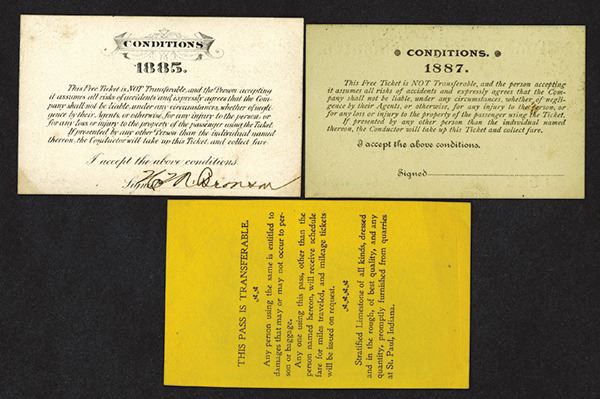 CONDITIONS
1885.
This Free Ticket is NOT Transferable, and the Person accepting
it assumes all risks of accidents and expressly agrees that the Com-
pany shall not be liable, under any circumstances, whether of negli-
gence by their Agents, or otherwise, for any injury to the person, or
for any loss or injury to the property of the passenger using the Ticket.
If presented by any other Person than the individual named
thereon, the Conductor will take up this Ticket, and collect fare.
I accept the above conditions.
Bronson
CONDITIONS.
1887.
This Free Ticket is NOT Transferable, and the person accepting
it assumes all risks of accidents and expressly agrees that the Com-
pany shall not be liable, under any circumstances, whether of negli-
gence by their Agents, or otherwise, for any injury to the person, or
for any loss or injury to the property of the passenger using the Ticket.
If presented by any other person than the individual named
thereon, the Conductor will take up this Ticket and collect fare.
I accept the above conditions.
Signed
THIS PASS IS TRANSFERABLE.
Any person using the same is entitled to
damages that may or may not occur to per-
son or baggage.
Any one using this pass, other than the
person named hereon, will receive schedule
fare for miles traveled, and mileage tickets
will be issued on request.
Stratified Limestone of all kinds, dressed
and in the rough, of best quality, and any
quantity, promptly furnished from quarries
at St. Paul, Indiana.